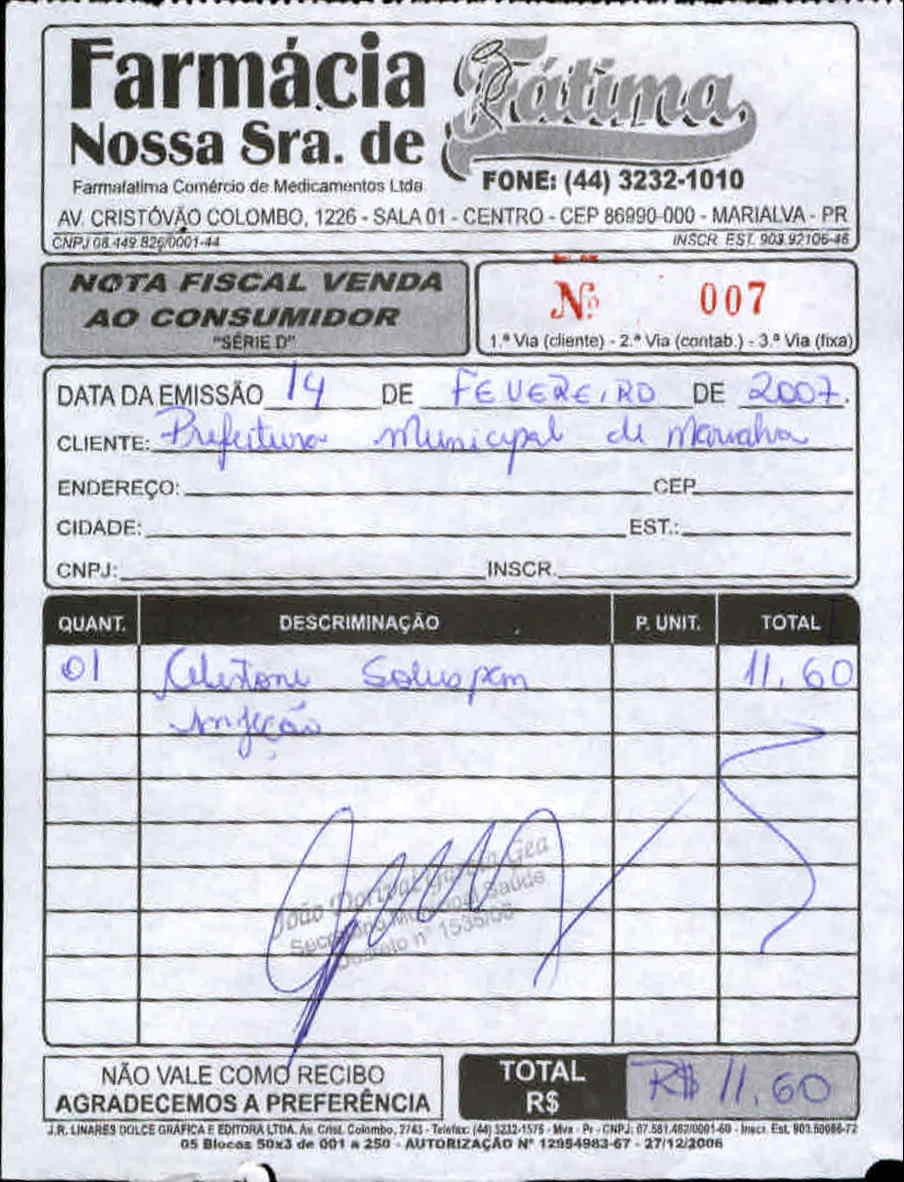 Farmácia Fátima
Nossa Sra. de
Farmafatima Comércio de Medicamentos Ltda
FONE: (44) 3232-1010
AV. CRISTÓVÃO COLOMBO, 1226 - SALA 01 - CENTRO - CEP 86990-000 - MARIALVA - PR
CNPJ 08.449.826/0001-44 INSCR. EST. 903.92106-46
NOTA FISCAL VENDA
AO CONSUMIDOR
"SÉRIE D"
Nº 007
1.ª Via (cliente) - 2.ª Via (contab.) - 3.ª Via (fixa)
DATA DA EMISSÃO 14 DE FEVEREIRO DE 2007.
CLIENTE: Prefeitura Municipal de Marialva
ENDEREÇO: CEP
CIDADE: EST.:
CNPJ: INSCR.
QUANT. DESCRIMINAÇÃO P. UNIT. TOTAL
01 Celestone Soluspan 11,60
Injeção
João Dorival Gea
Secretário Municipal Saúde
Decreto nº 1535/06
NÃO VALE COMO RECIBO
AGRADECEMOS A PREFERÊNCIA
TOTAL R$ R$ 11,60
J.R. LINARES DOLCE GRÁFICA E EDITORA LTDA. Av. Crist. Colombo, 2743 - Telefax: (44) 3232-1575 - Mva - Pr - CNPJ: 07.581.462/0001-60 - Inscr. Est. 903.50086-72
05 Blocos 50x3 de 001 a 250 - AUTORIZAÇÃO Nº 12954983-67 - 27/12/2006